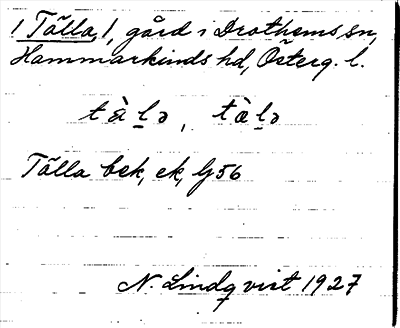 1 Tålla, 1, gård i Drothems sn,
Hammarkinds hd, Österg. l.
Tålla bek, ek, G 56
N. Lindqvist 1927